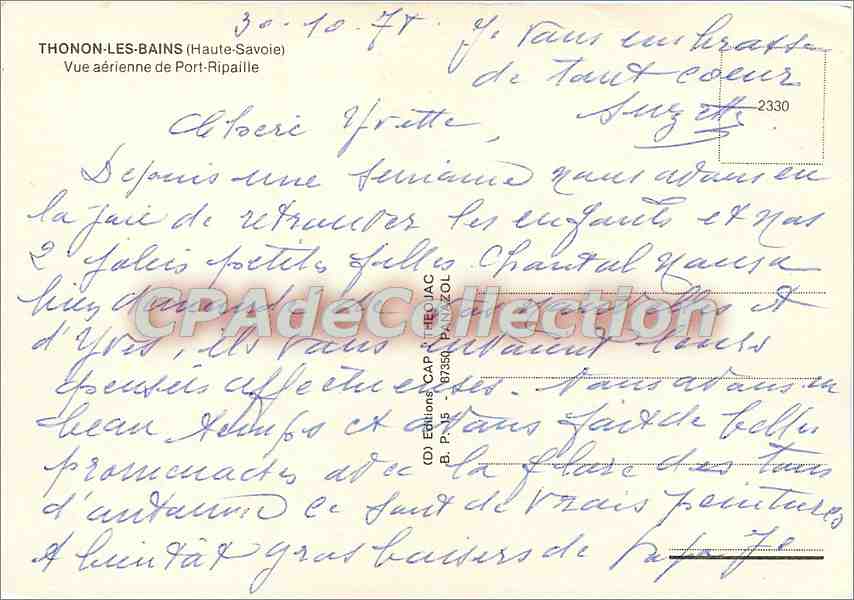 30-10-74.
THONON-LES-BAINS (Haute-Savoie)
Vue aérienne de Port-Ripaille
2330
Chère Yvette,
Depuis une semaine nous avons eu
la joie de retrouver les enfants et nos
2 jolies petites filles Chantal nous a
bien demandé de nouvelles et
d'Yves, ils vous envoient leurs
pensées affectueuses. Nous avons eu
beau temps et avons fait de belles
promenades avec la flore des tons
d'automne ce sont de vrais peintures
A bientôt gros baisers de
Je vous embrasse
de tout coeur
Suzette
(D) Editions CAP - THEOJAC
B. P. 15 - 87350 PANAZOL
CPAdeCollection